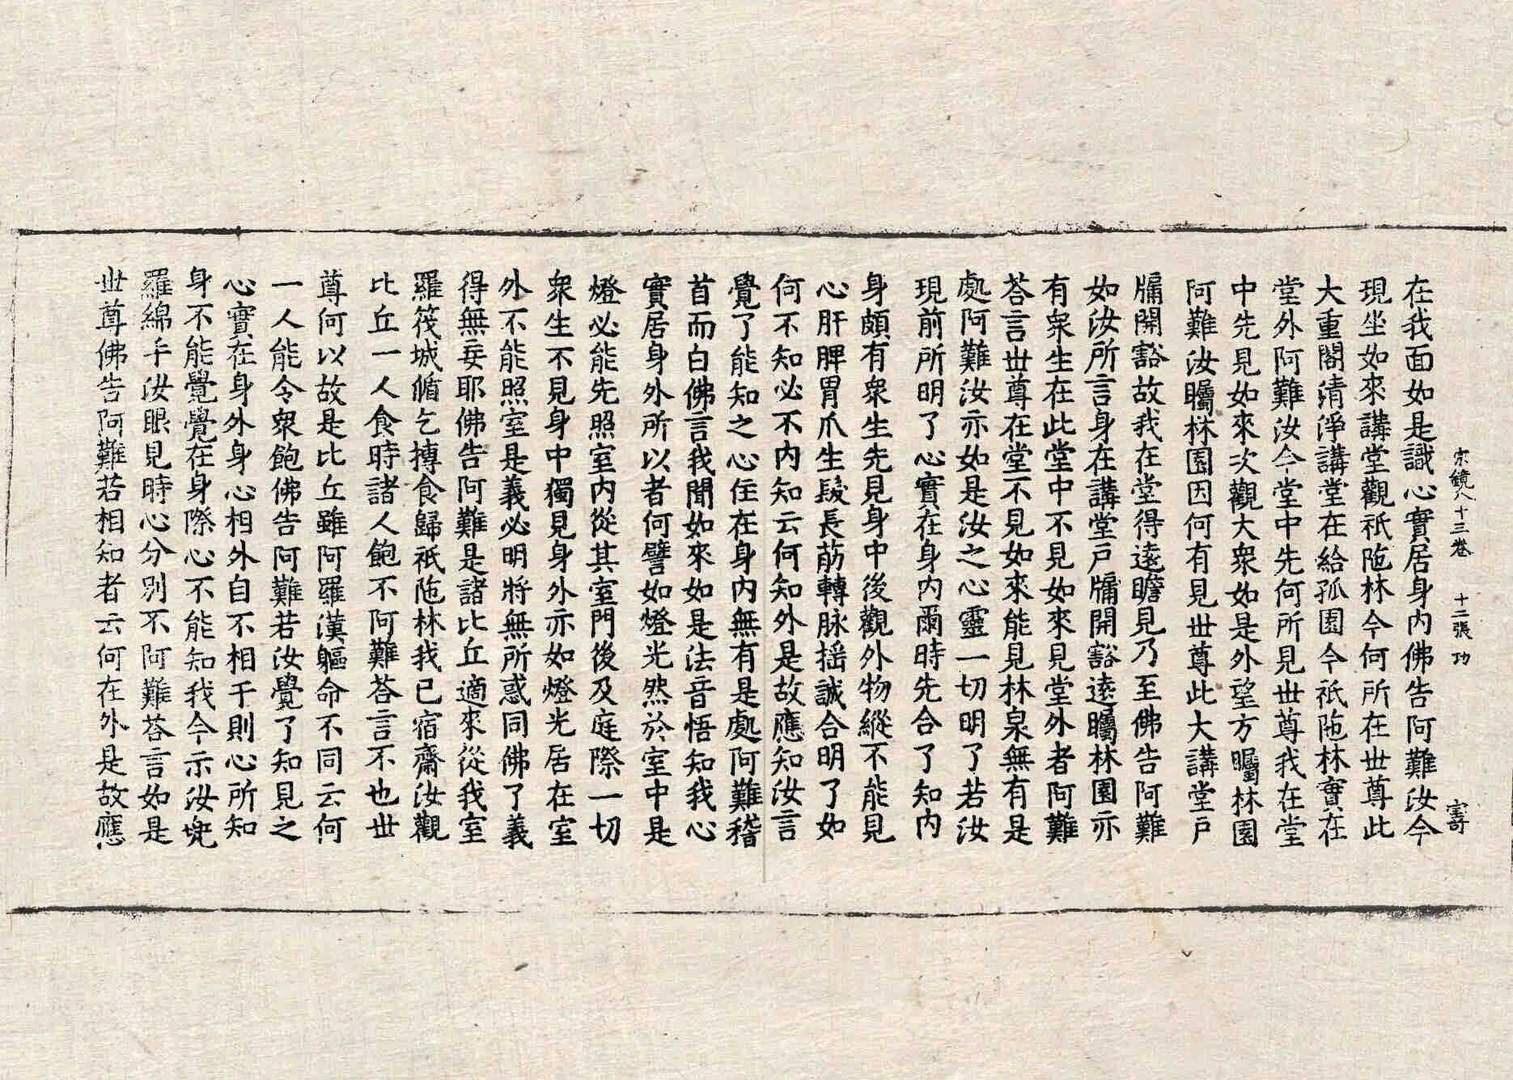 宗鏡八十三卷 十二張 功 寄
在我面如是識心實居身內佛告阿難汝今
現坐如來講堂觀祇陁林今何所在世尊此
大重閣清淨講堂在給孤園今祇陁林實在
堂外阿難汝今堂中先何所見世尊我在堂
中先見如來次觀大衆如是外望方矚林園
阿難汝矚林園因何有見世尊此大講堂戶
牖開豁故我在堂得遠瞻見乃至佛告阿難
如汝所言身在講堂戶牖開豁遠矚林園亦
有衆生在此堂中不見如來見堂外者阿難
荅言世尊在堂不見如來能見林泉無有是
處阿難汝亦如是汝之心靈一切明了若汝
現前所明了心實在身內爾時先合了知內
身頗有衆生先見身中後觀外物縱不能見
心肝脾胃爪生髮長筋轉脉搖誠合明了如
何不知必不內知云何知外是故應知汝言
覺了能知之心住在身內無有是處阿難稽
首而白佛言我聞如來如是法音悟知我心
實居身外所以者何譬如燈光然於室中是
燈必能先照室內從其室門後及庭際一切
衆生不見身中獨見身外亦如燈光居在室
外不能照室是義必明將無所惑同佛了義
得無妄耶佛告阿難是諸比丘適來從我室
羅筏城循乞摶食歸祇陁林我已宿齋汝觀
比丘一人食時諸人飽不阿難荅言不也世
尊何以故是比丘雖阿羅漢軀命不同云何
一人能令衆飽佛告阿難若汝覺了知見之
心實在身外身心相外自不相干則心所知
身不能覺覺在身際心不能知我今示汝兜
羅綿手汝眼見時心分別不阿難荅言如是
世尊佛告阿難若相知者云何在外是故應